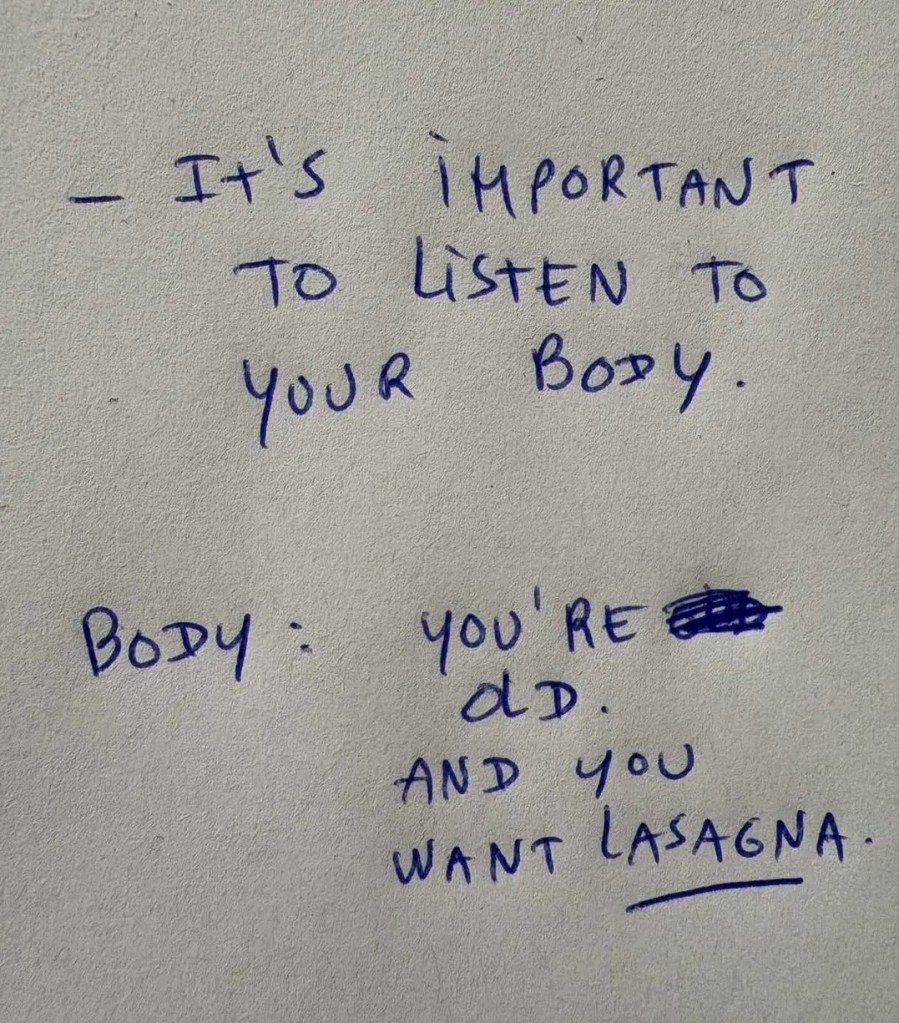 - It's iMPORTANT
TO LiSTEN TO
YOUR BODY.
BODY: YOU'RE
OLD.
AND YOU
WANT LASAGNA.